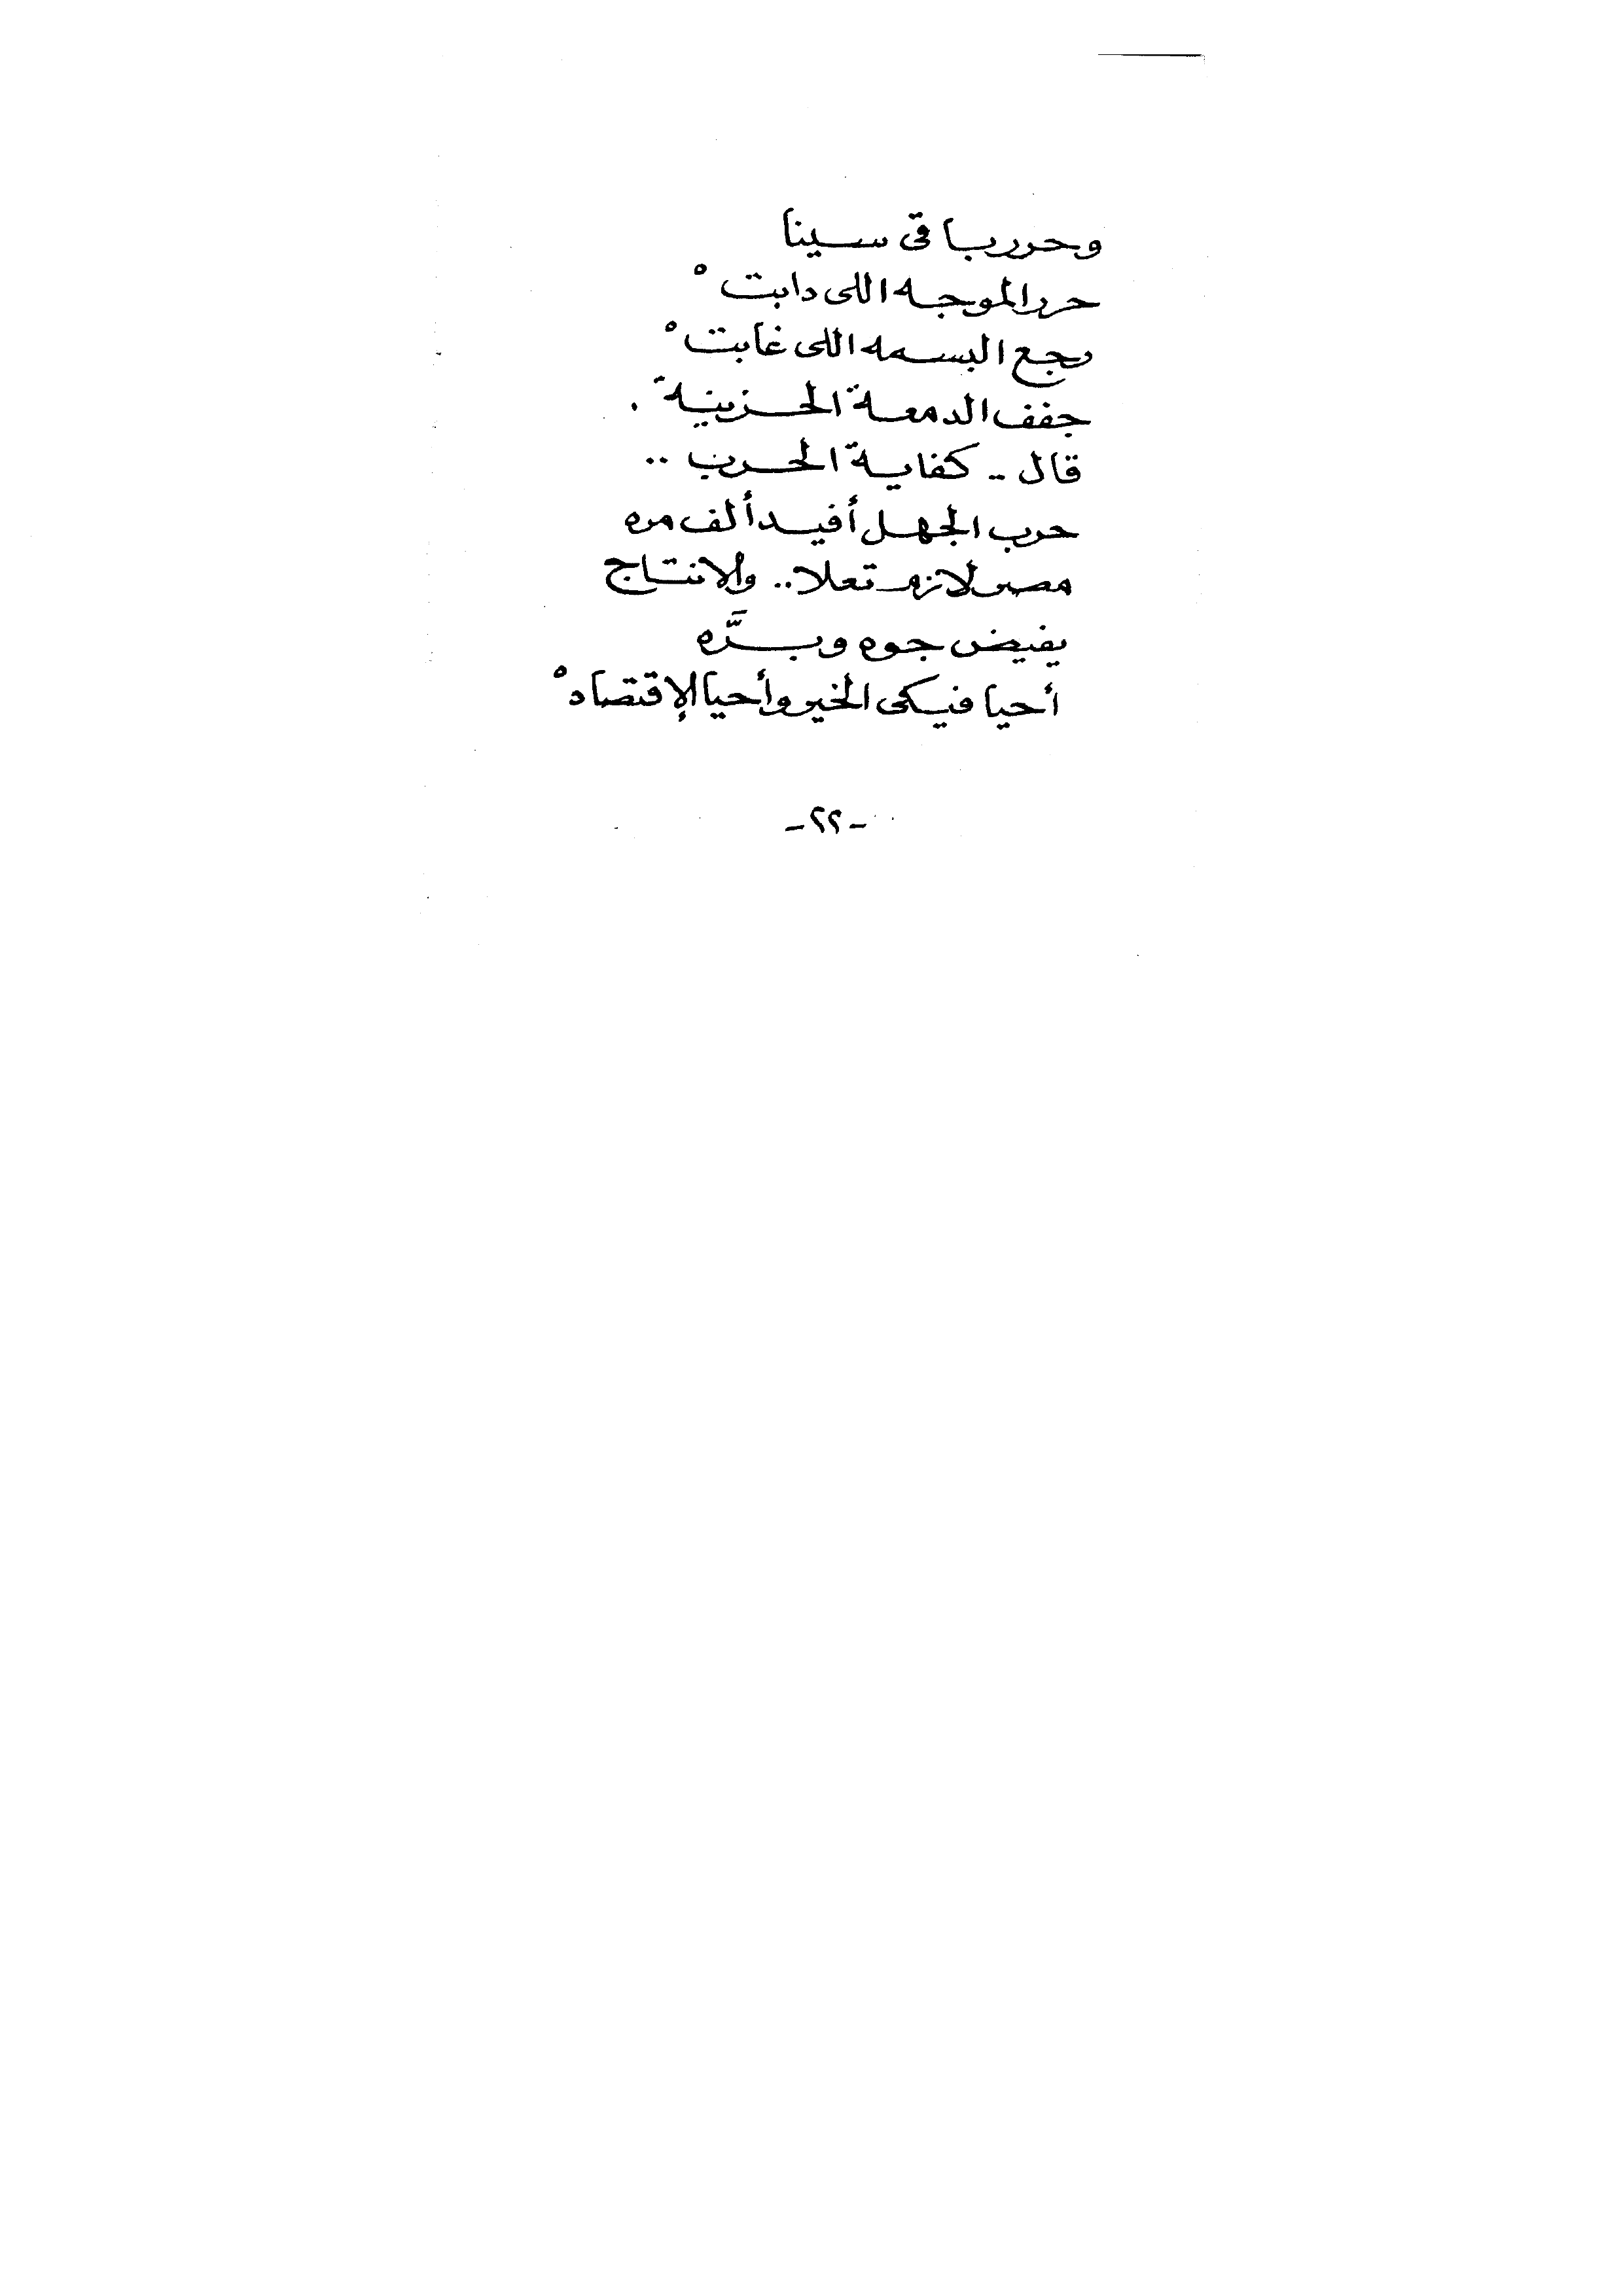 وحرر باقى سينا
حرر الموجه اللى دابتْ
رجع البسمه اللى غابتْ
جفف الدمعة الحزينة .
قال .. كفاية الحرب ..
حرب الجهل أفيد ألف مره
مصر لازم تعلا .. والانتاج
يفيض جوه وبرَّه
أحيا فيكى الخير وأحيا الإقتصادْ
-٢٢-